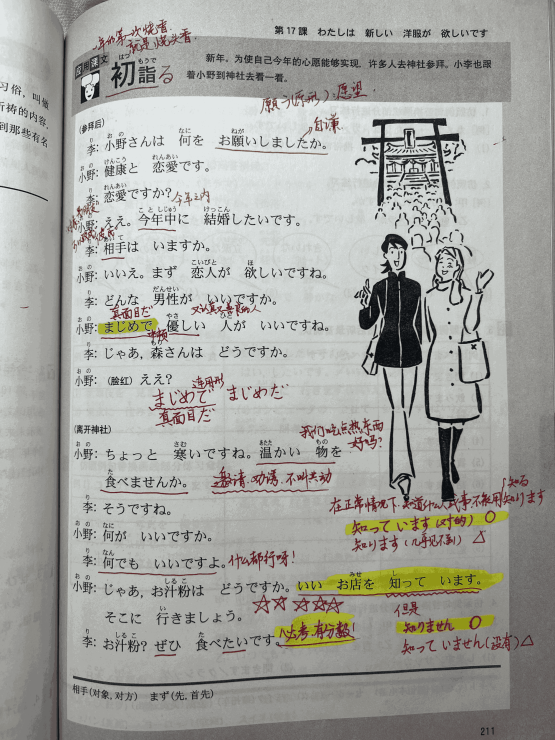 第17課 わたしは 新しい 洋服が 欲しいです
习俗，叫做
祈祷的内容，
到那些有名
应用课文
初詣る
はつ もうで
新年，为使自己今年的心愿能够实现，许多人去神社参拜。小李也跟
着小野到神社去看一看。
願う(原形)：愿望
自谦
(参拜后)
李：小野さんは 何を お願いしましたか。
小野：健康と 恋愛です。
李：恋愛ですか？
今年之内
小野：ええ。今年中に 結婚したいです。
李：相手は いますか。
小野：いいえ。まず 恋人が 欲しいですね。
李：どんな 男性が いいですか。
真面目だ
小野：まじめで 優しい 人が いいですね。
李：じゃあ，森さんは どうですか。
小野：(脸红) ええ？
连用形
まじめで まじめだ
真面目だ
(离开神社)
我们吃点热东西
好吗？
小野：ちょっと 寒いですね。温かい 物を
食べませんか。
邀请、劝诱、不叫共动
李：そうですね。
知る
知ります
知って います(对的) ○
知ります(几乎见不到) △
小野：何が いいですか。
李：何でも いいですよ。
什么都行呀！
小野：じゃあ，お汁粉は どうですか。いい お店を 知って います。
☆☆☆☆☆
そこに 行きましょう。
但是
必考、有分数！
知りません ○
李：お汁粉？ ぜひ 食べたいです。
知って いません(没有) △
相手(对象，对方) まず(先，首先)
211